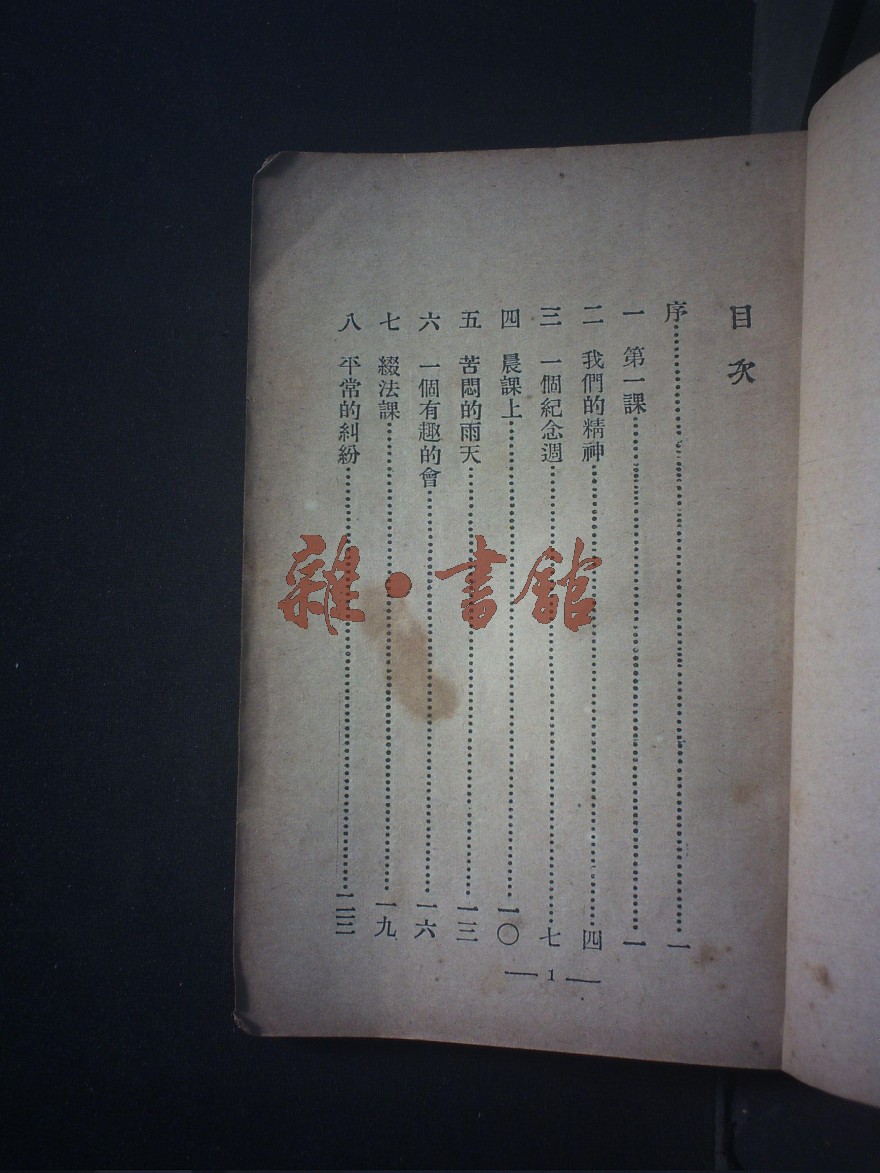 目次
序……一
一 第一課……一
二 我們的精神……四
三 一個紀念週……七
四 晨課上……一〇
五 苦悶的雨天……一三
六 一個有趣的會……一六
七 綴法課……一九
八 平常的糾紛……二三
— 1 —
雜·書館